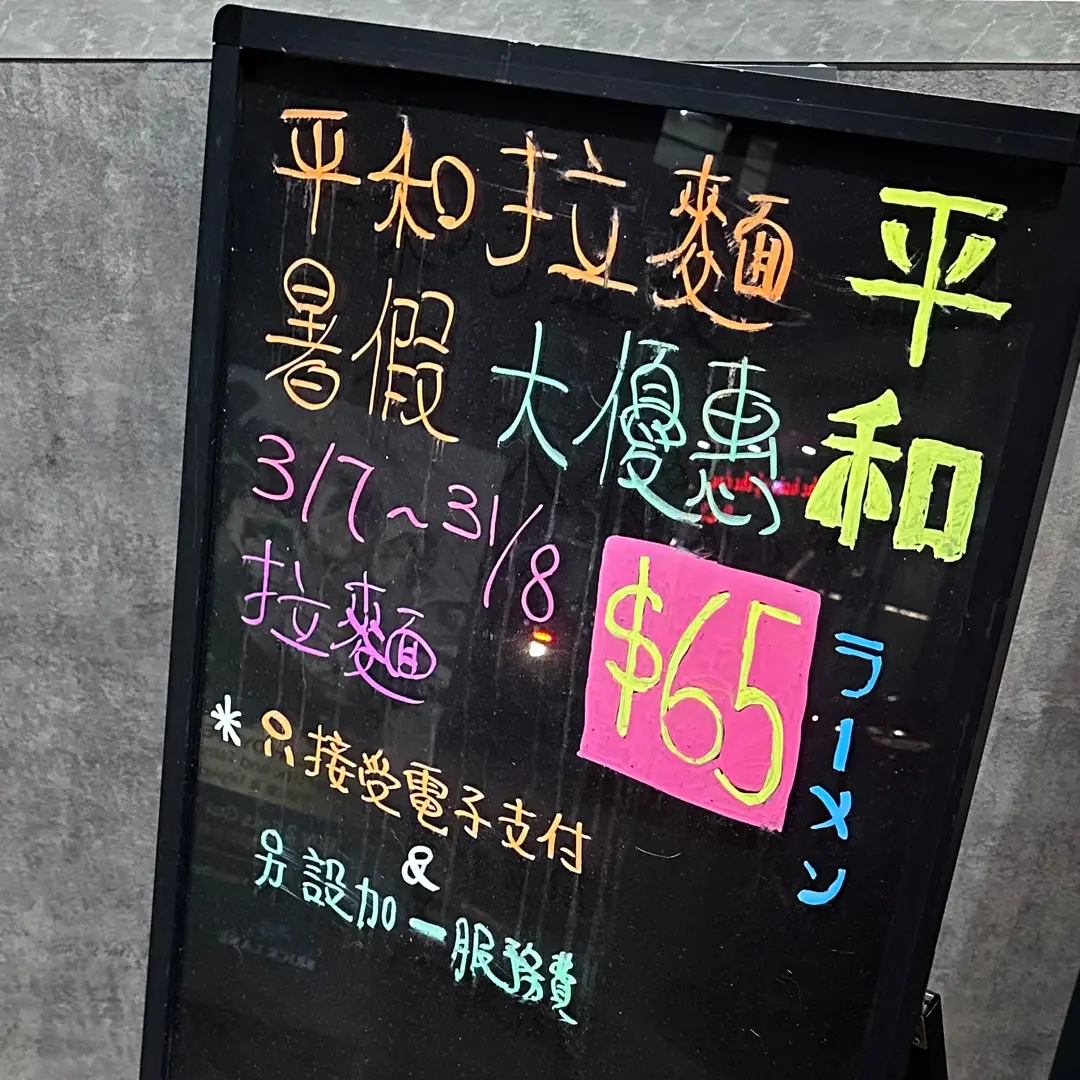 平和拉麵
暑假 大優惠
3/7~31/8
拉麵
$65
*只接受電子支付
&
另設加一服務費
平和
ラーメン